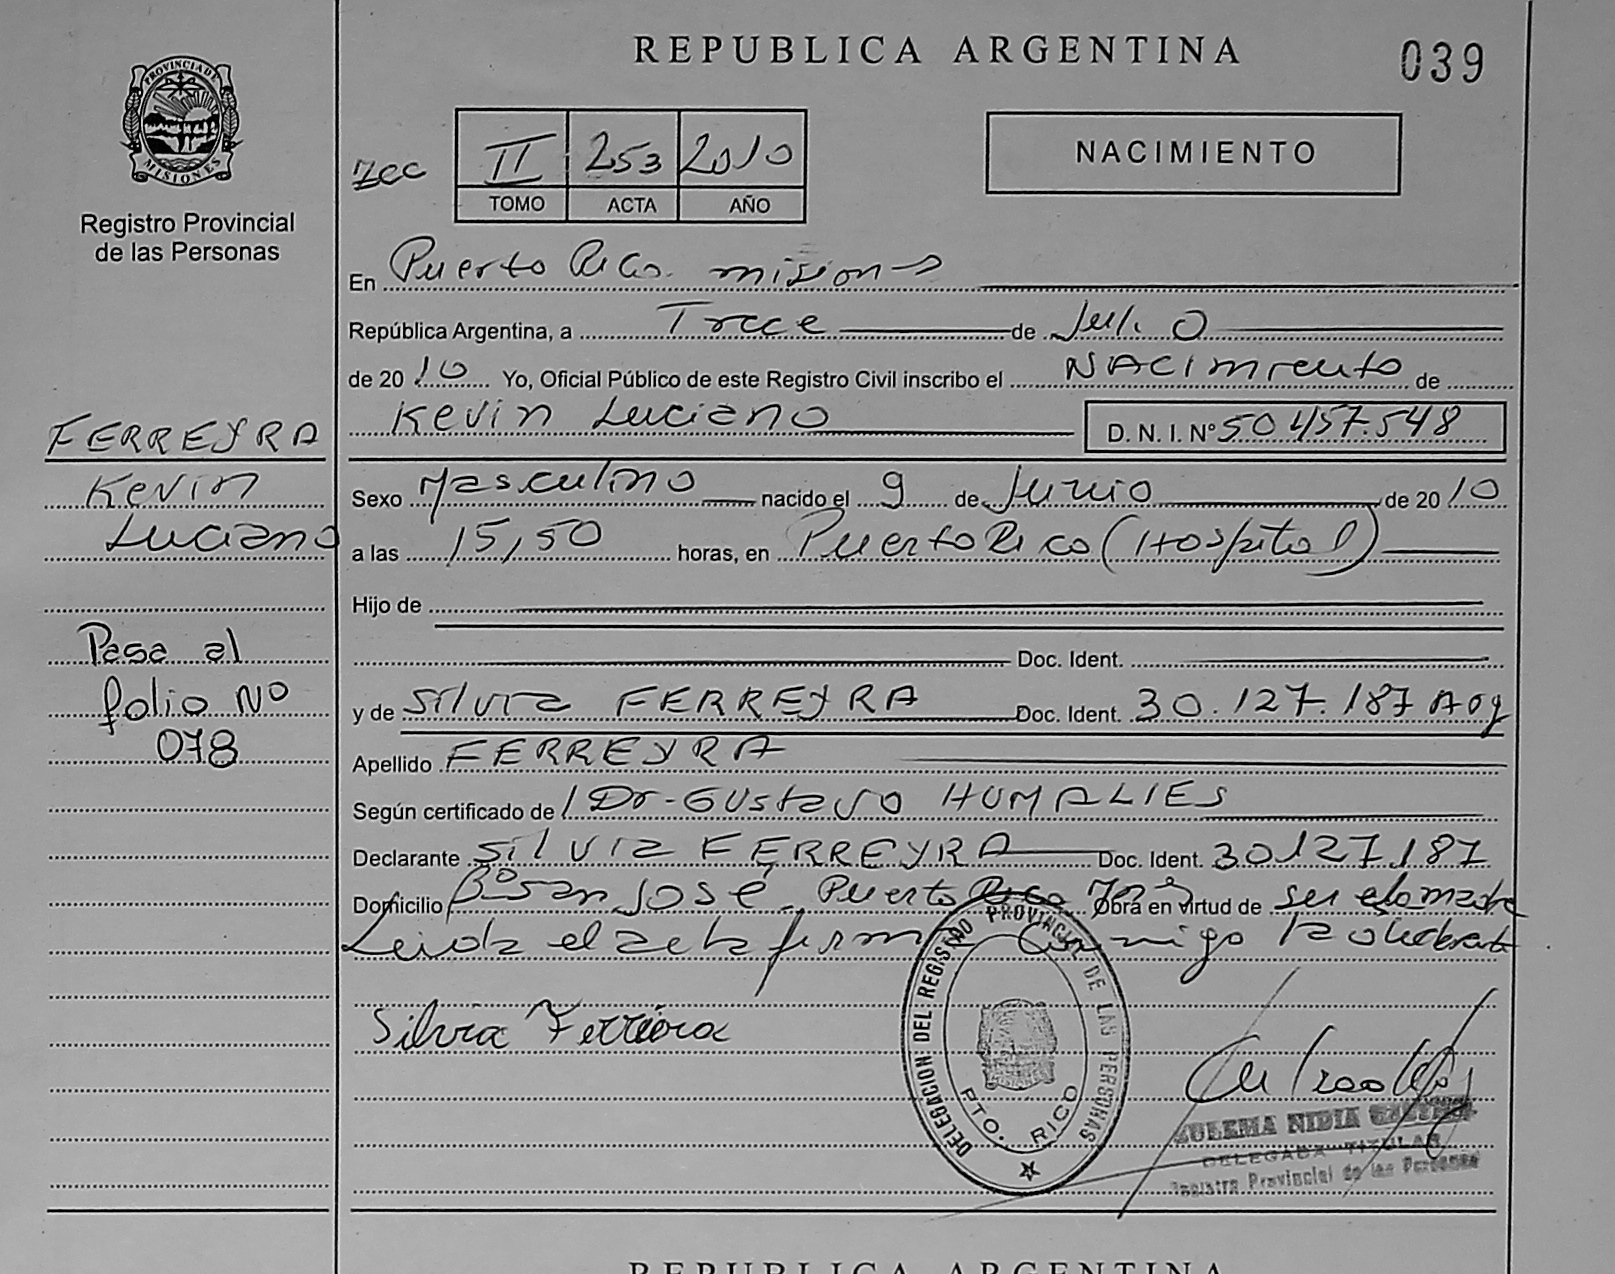 REPUBLICA ARGENTINA
039
PROVINCIA DE
MISIONES
Registro Provincial
de las Personas
NACIMIENTO
II 253 2010
TOMO ACTA AÑO
En Puerto Rico. misiones
República Argentina, a Trece de Julio
de 2010 Yo, Oficial Público de este Registro Civil inscribo el NACImiento de
Kevin Luciano D. N. I. Nº 50.457.548
Sexo Masculino nacido el 9 de Junio de 2010
a las 15,50 horas, en Puerto Rico (Hospital)
Hijo de
Doc. Ident.
y de Silvia FERREYRA Doc. Ident. 30.127.187 Arg
Apellido FERREYRA
Según certificado de / Dr. Gustavo HUMALIES
Declarante Silvia FERREYRA Doc. Ident. 30127187
Domicilio Bº San José. Puerto Rico Obra en virtud de ser la madre
Leida el acta firma conmigo la
Silvia Ferreira
FERREYRA
Kevin
Luciano
Pasa al
folio Nº
078
DELEGACION DEL REGISTRO PROVINCIAL DE LAS PERSONAS
PTO. RICO
ZULEMA NIDIA
DELEGADA TITULAR
Registro Provincial de las Personas
REPUBLICA ARGENTINA